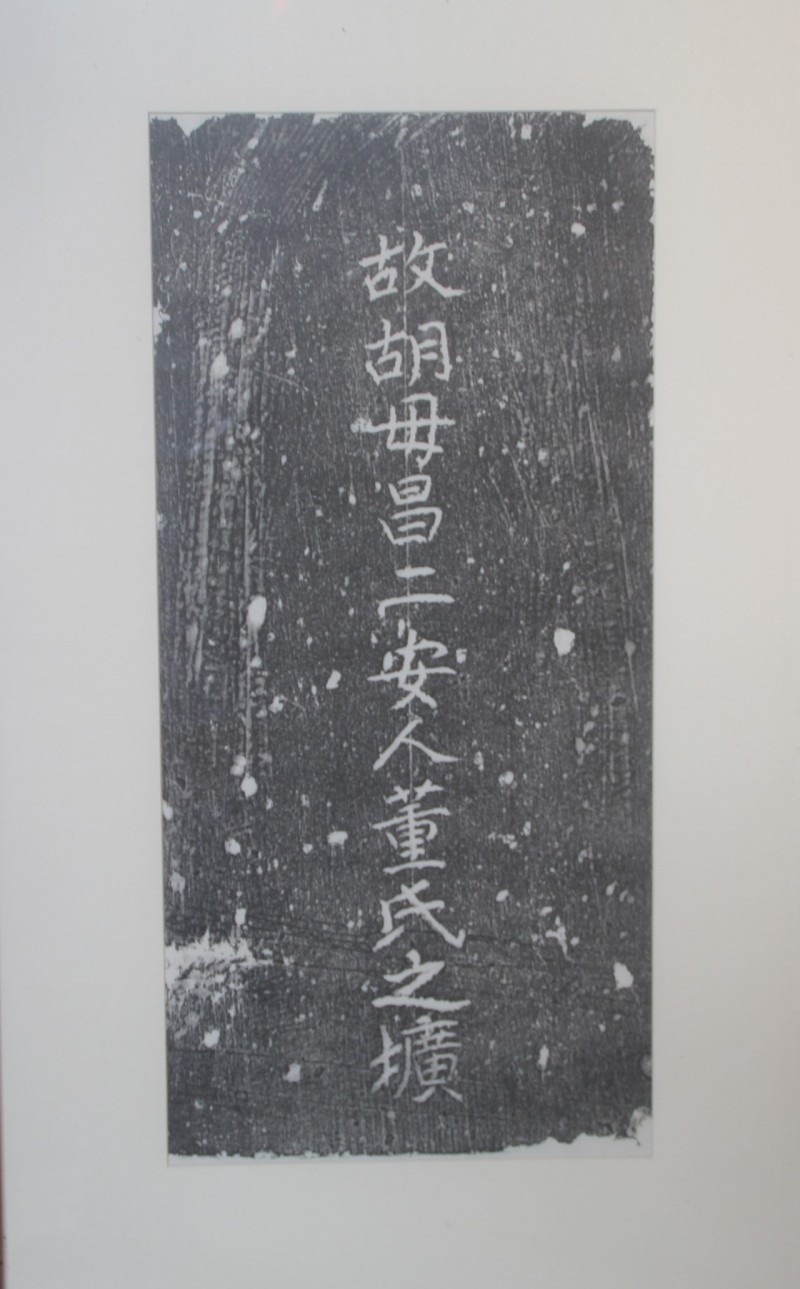 故胡毋昌二安人董氏之壙